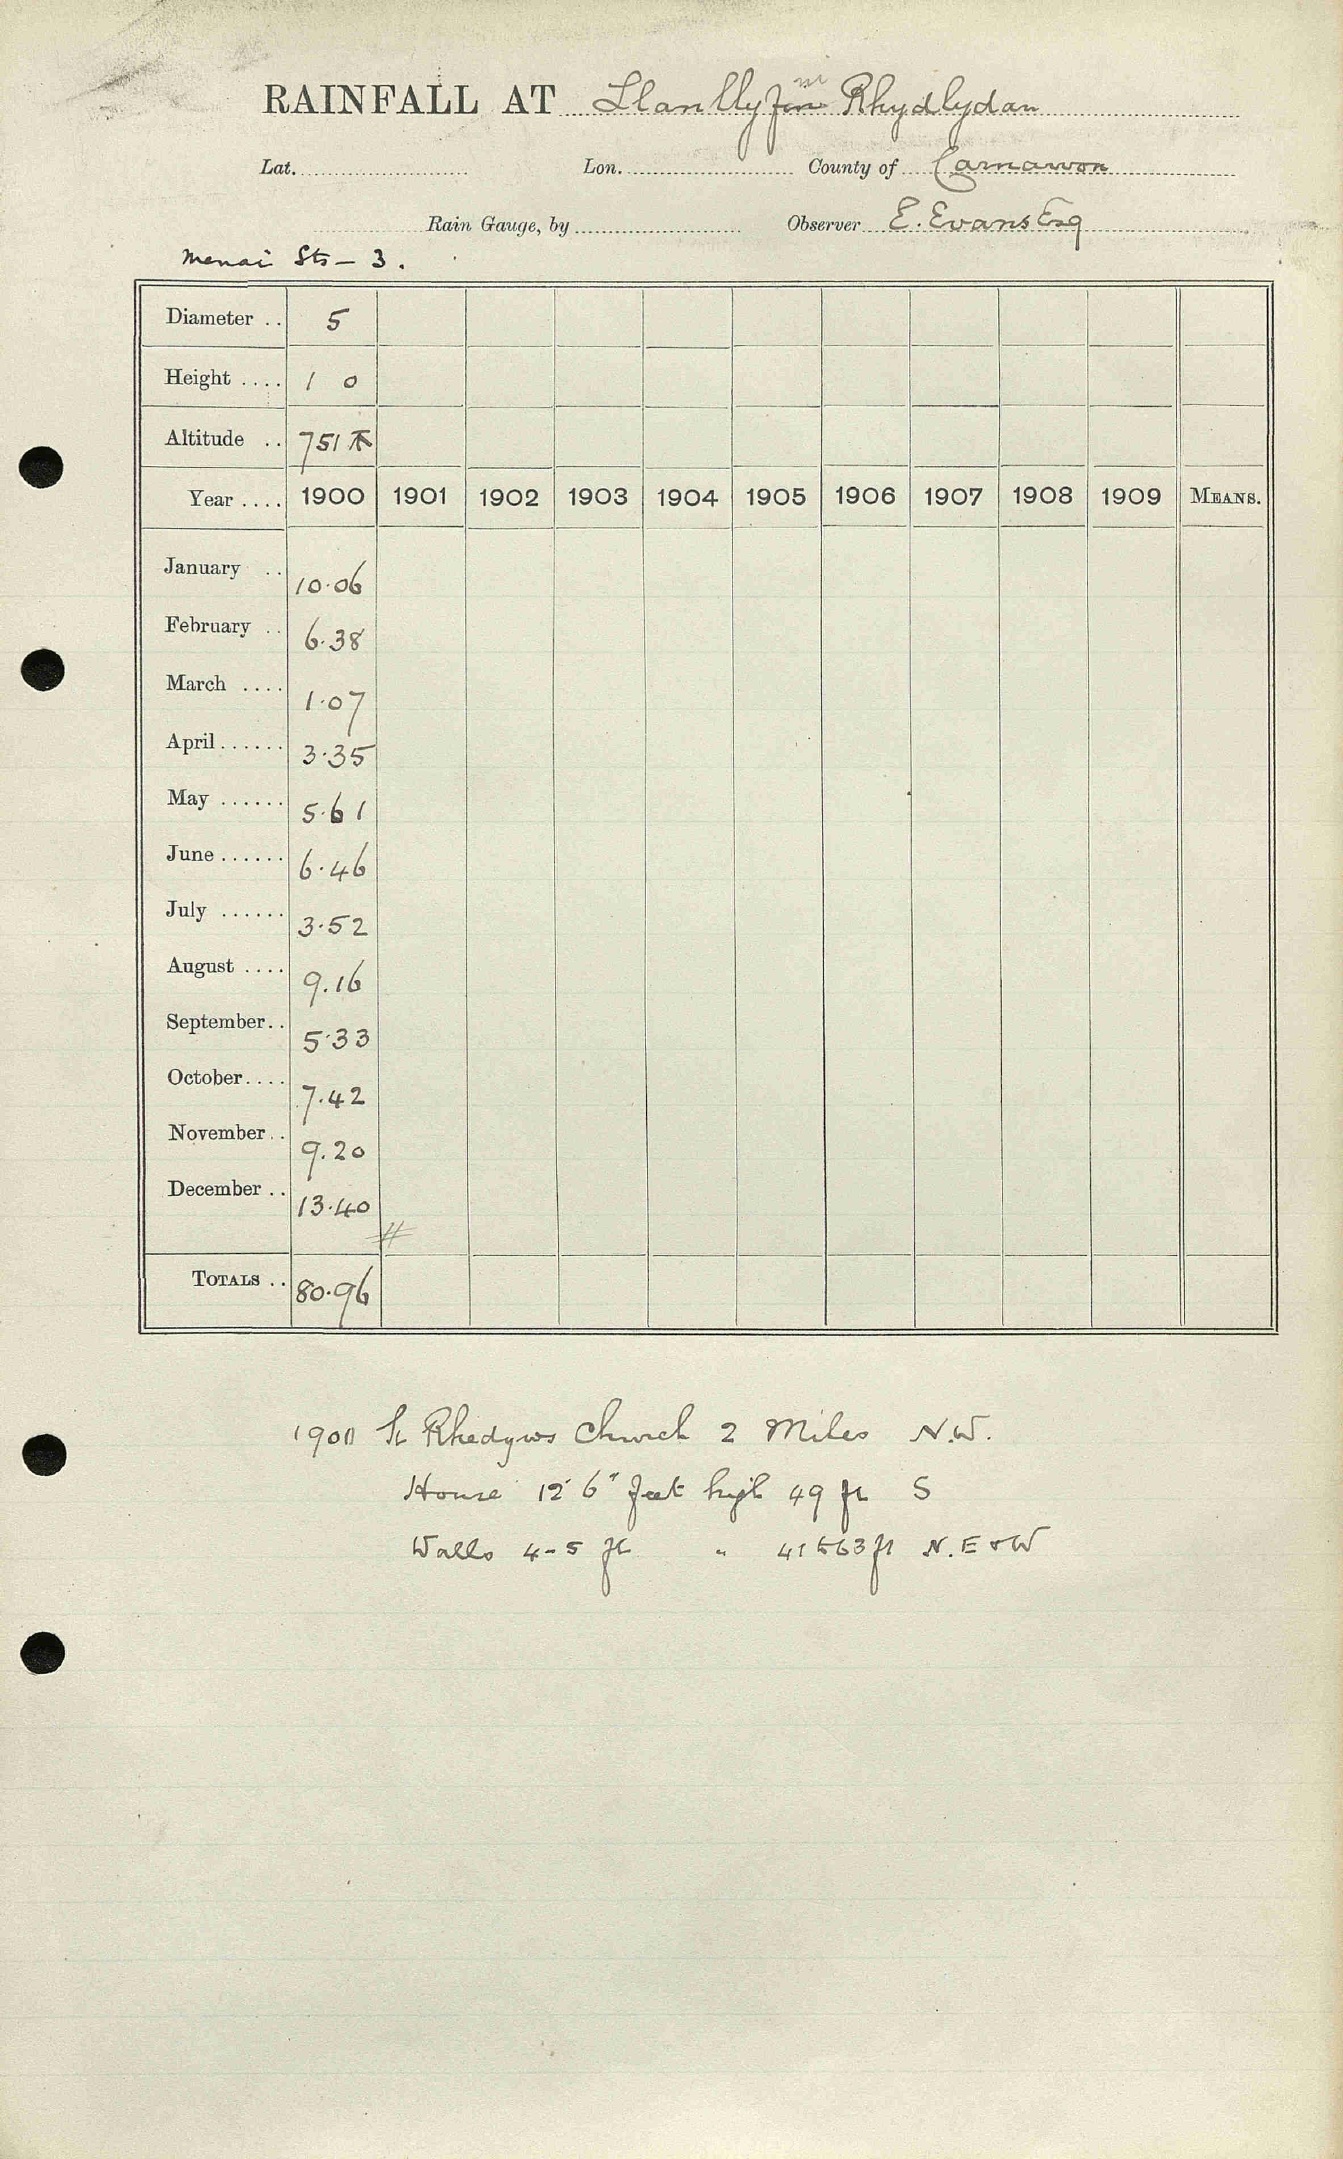 RAINFALL AT Llanllyfni Rhydlydan
Lat. Lon. County of Carnarvon
Rain Gauge, by Observer E. Evans Esq
Menai Sts - 3.
Diameter .. 5
Height .... 1 0
Altitude .. 751
Year .... 1900 1901 1902 1903 1904 1905 1906 1907 1908 1909 MEANS.
January .. 10.06
February .. 6.38
March .... 1.07
April ...... 3.35
May ...... 5.61
June ...... 6.46
July ...... 3.52
August .... 9.16
September .. 5.33
October .... 7.42
November .. 9.20
December .. 13.40
TOTALS .. 80.96
1900 St Rhedyws Church 2 Miles N.W.
House 12' 6" feet high 49 ft S
Walls 4-5 ft " 41 to 63 ft N. E & W